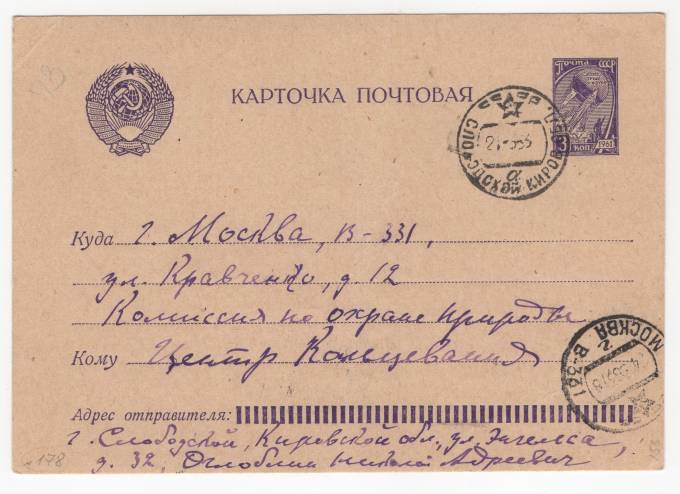 ПОЧТА СССР
3 КОП. 1961
КАРТОЧКА ПОЧТОВАЯ
СЛОБОДСКОЙ КИРОВ
а
Куда г. Москва, В-331,
ул. Кравченко, д. 12
Комиссия по охране природы
Кому Центр Кольцевания
МОСКВА В-331
г
Адрес отправителя:
г. Слободской, Кировской обл., ул. Энгельса,
д. 32, Оглоблин Николай Адреевич
178
153